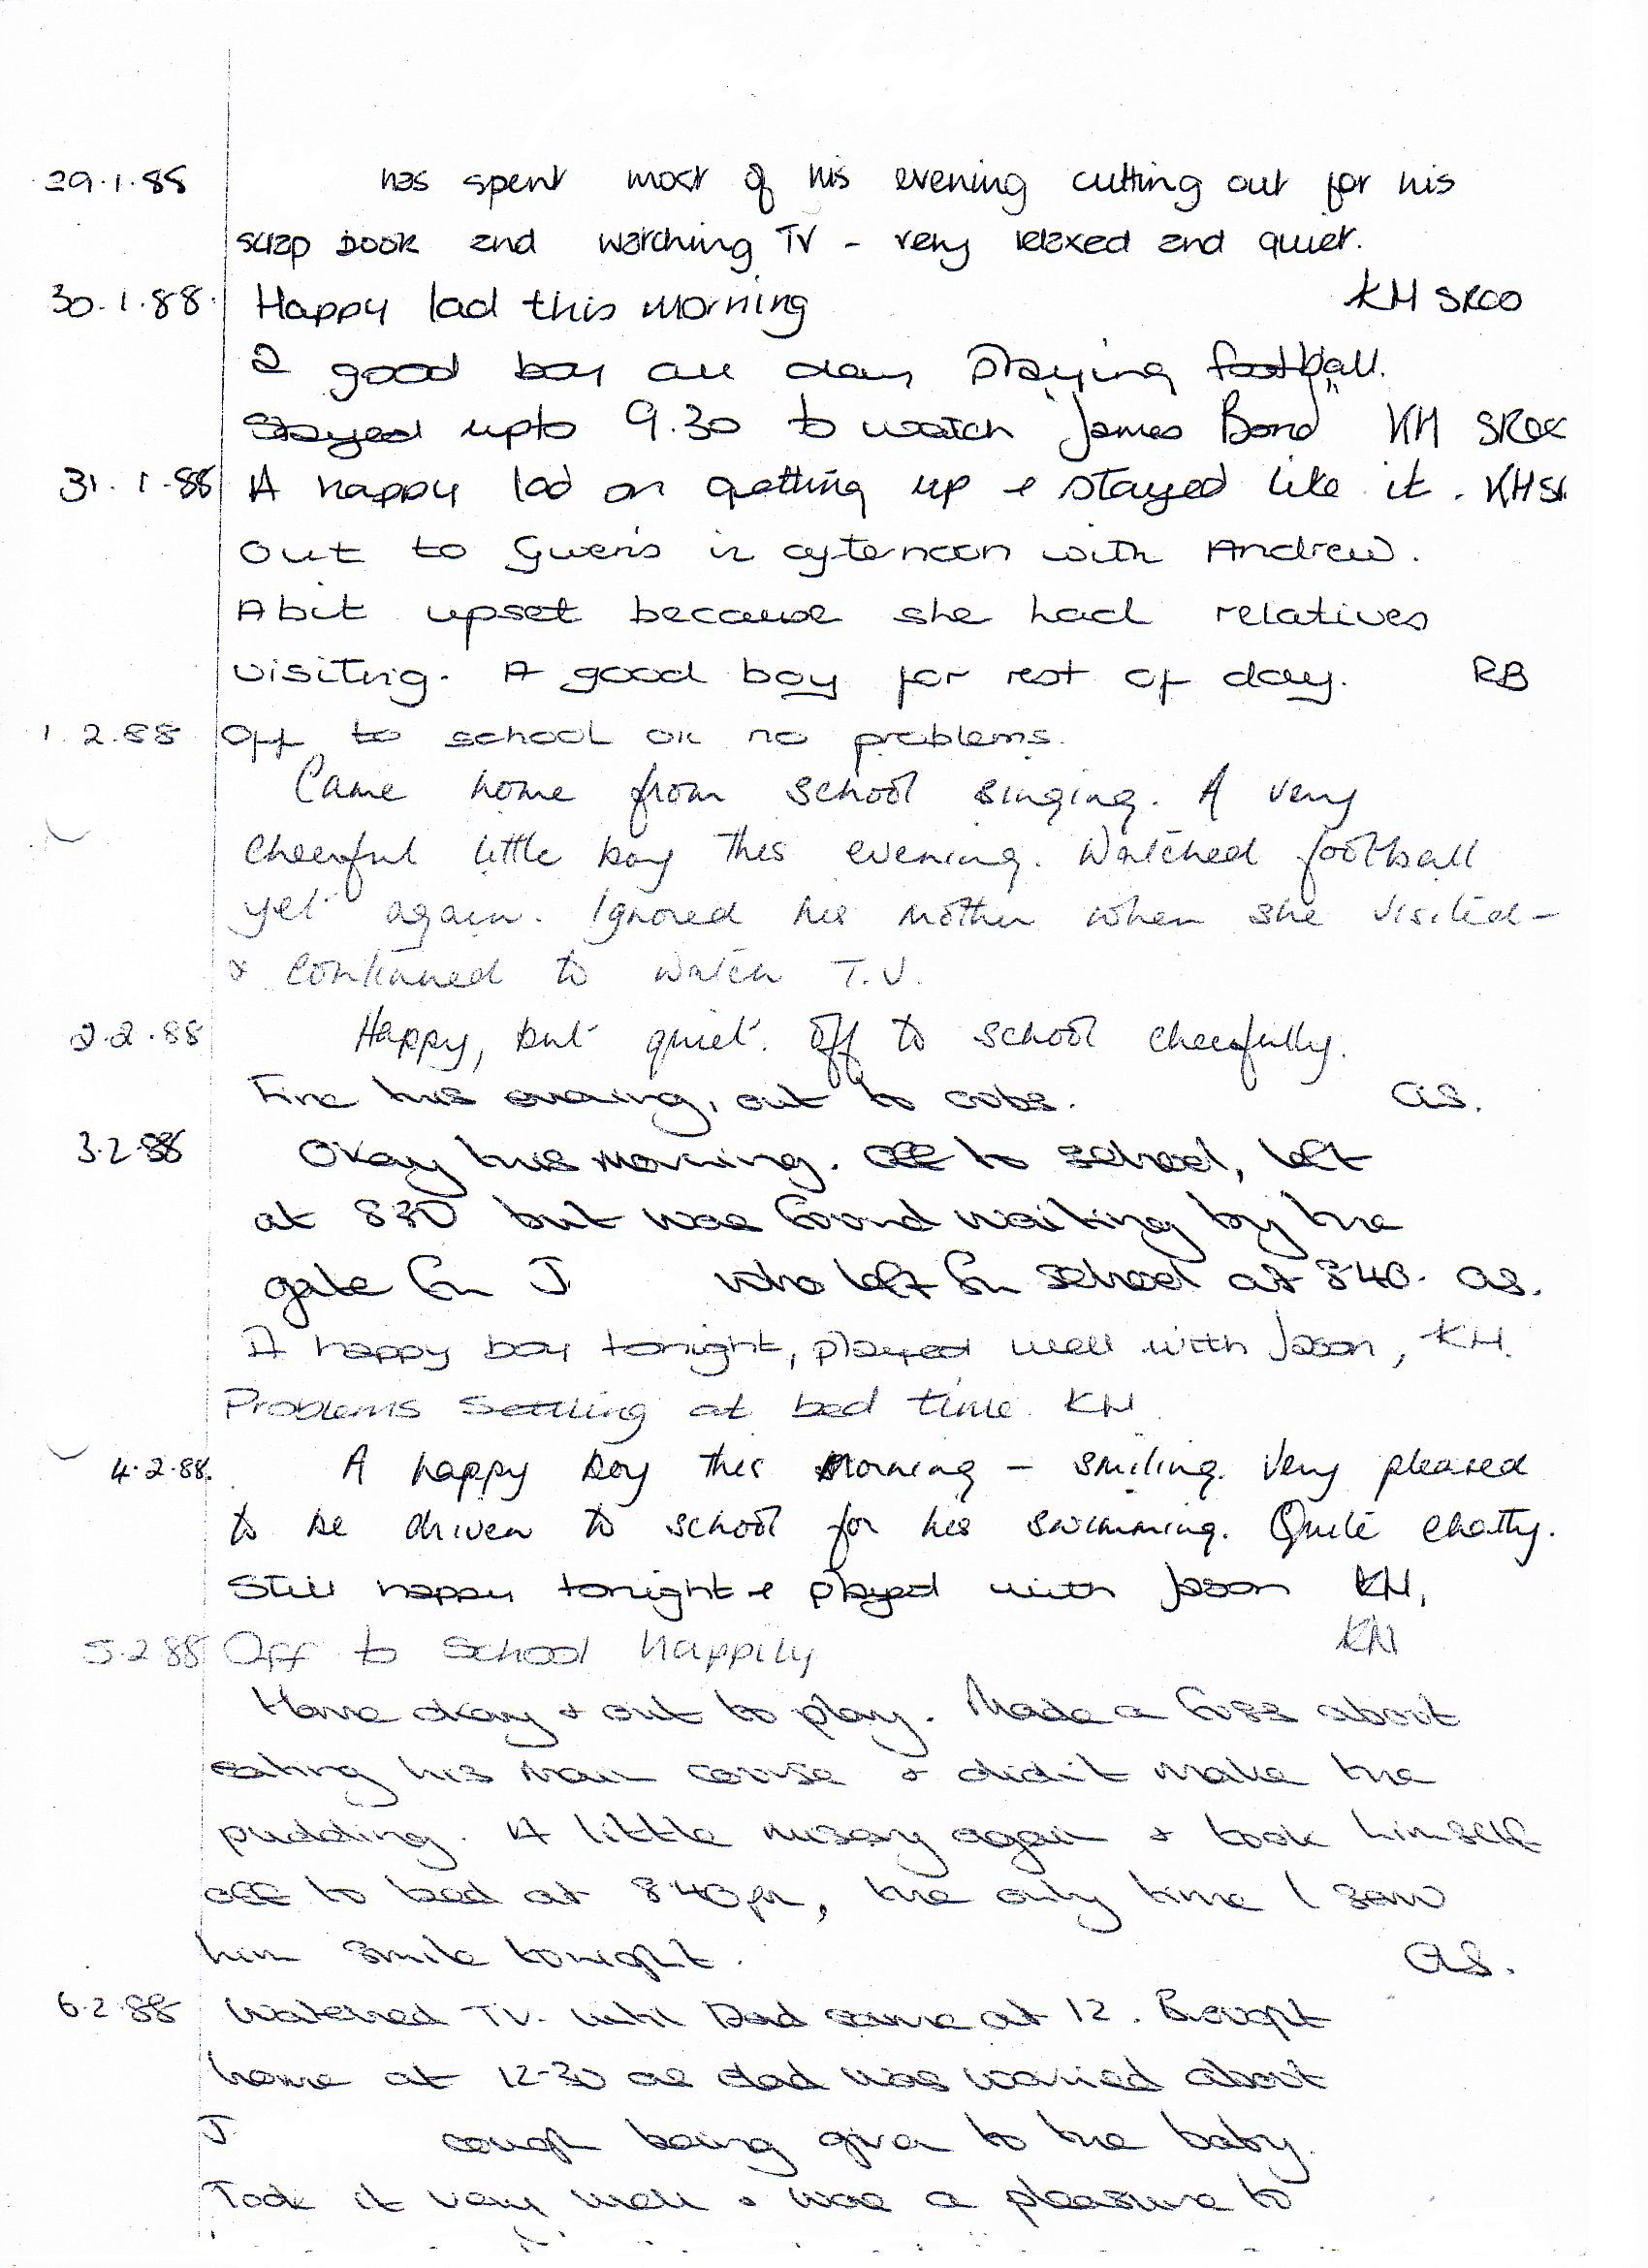 29.1.88 has spent most of his evening cutting out for his
scrap book and watching TV - very relaxed and quiet.
30.1.88. Happy lad this morning KH SRCO
a good boy all day playing football.
Stayed upto 9.30 to watch "James Bond" KH
31.1.88 A happy lad on getting up & stayed like it.
Out to Gwen's in afternoon with Andrew.
A bit upset because she had relatives
visiting. A good boy for rest of day. RB
1.2.88 Off to school ok no problems.
Came home from school singing. A very
cheerful little boy this evening. Watched football
yet again. Ignored his mother when she visited -
& continued to watch T.V.
2.2.88 Happy, but quiet. Off to school cheerfully.
Fine this evening, out to cubs. as.
3.2.88 Okay this morning. Off to school, left
at 830 but was found waiting by the
gate for J who left for school at 840. as.
A happy boy tonight, played well with Jason, KH.
Problems settling at bed time. KH
4.2.88. A happy boy this morning - smiling. Very pleased
to be driven to school for his swimming. Quite chatty.
Still happy tonight & played with Jason KH.
5.2.88 Off to school happily KH
Home okay & out to play. Made a fuss about
eating his main course & didn't make the
pudding. A little again & took himself
off to bed at 840pm, the only time I saw
him smile tonight. as.
6.2.88 Watched TV. until Dad came at 12. Brought
home at 12-30 as dad was worried about
J cough being given to the baby.
Took it very well & was a pleasure to